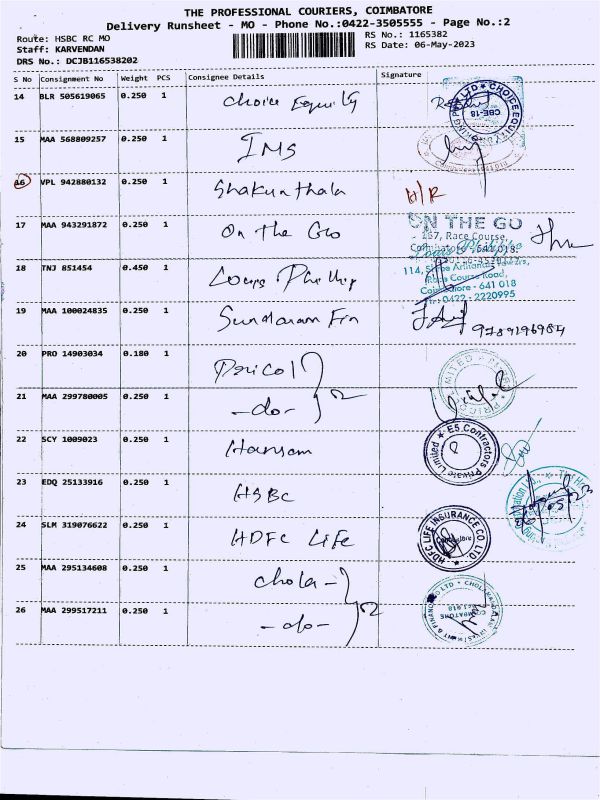 THE PROFESSIONAL COURIERS, COIMBATORE
Delivery Runsheet - MO - Phone No.:0422-3505555 - Page No.:2
Route: HSBC RC MO
RS No.: 1165382
Staff: KARVENDAN
RS Date: 06-May-2023
DRS No.: DCJB116538202
S No Consignment No Weight PCS Consignee Details Signature
14 BLR 505619065 0.250 1 Choice Equity
CHOICE EQUITY CBE-18
15 MAA 568809257 0.250 1 IMS
16 VPL 942880132 0.250 1 Shakunthala H/R
17 MAA 943291872 0.250 1 On the Go
ON THE GO
167, Race Course,
Coimbatore - 641 018.
18 TNJ 851454 0.450 1 Louis Phillip
Louis Philippe
114,
Race Course Road,
Coimbatore - 641 018
0422 - 2220995
19 MAA 100024835 0.250 1 Sundaram Fin 9789196984
20 PRO 14903034 0.180 1 Pricol
21 MAA 299780005 0.250 1 -do- 2
PRICOL LIMITED
22 SCY 1009023 0.250 1 Hansam
E5 Contractors Private Limited
23 EDQ 25133916 0.250 1 HSBC
24 SLM 319076622 0.250 1 HDFC Life
HDFC LIFE INSURANCE CO. LTD
25 MAA 295134608 0.250 1 Chola-
26 MAA 299517211 0.250 1 -do- 2